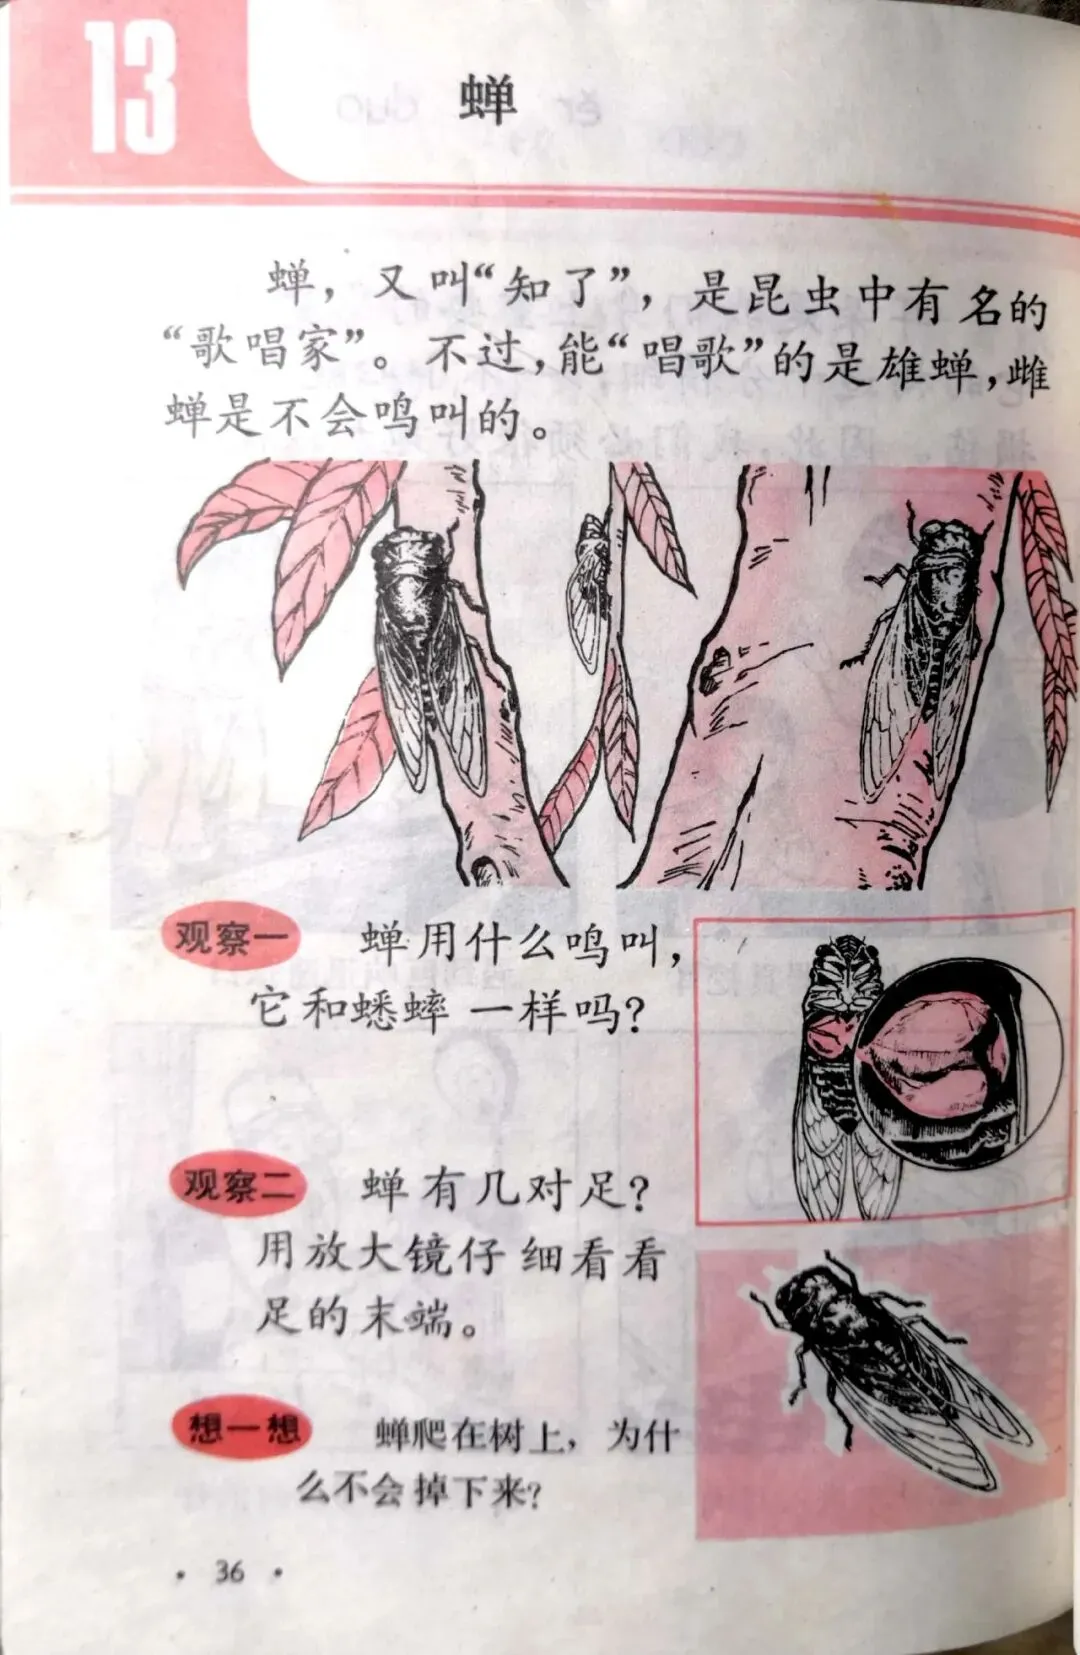 13
蝉
蝉，又叫“知了”，是昆虫中有名的
“歌唱家”。不过，能“唱歌”的是雄蝉，雌
蝉是不会鸣叫的。
观察一 蝉用什么鸣叫，
它和蟋蟀一样吗？
观察二 蝉有几对足？
用放大镜仔细看看
足的末端。
想一想 蝉爬在树上，为什
么不会掉下来？
·36·